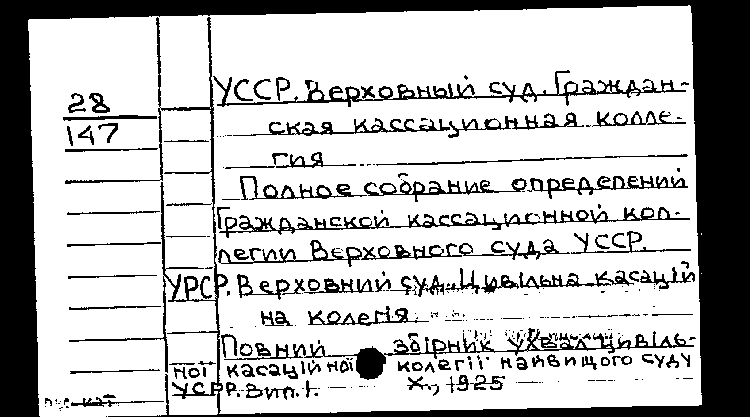 28
147
УССР. Верховный суд. Граждан-
ская кассационная колле-
гия
Полное собрание определений
Гражданской кассационной кол-
легии Верховного суда УССР.
УРСР. Верховний суд. Цивільна касацій
на колегія.
Повний збірник ухвал цивіль-
ної касаційної колегії найвищого суду
УСРР. Вип. 1. Х., 1925